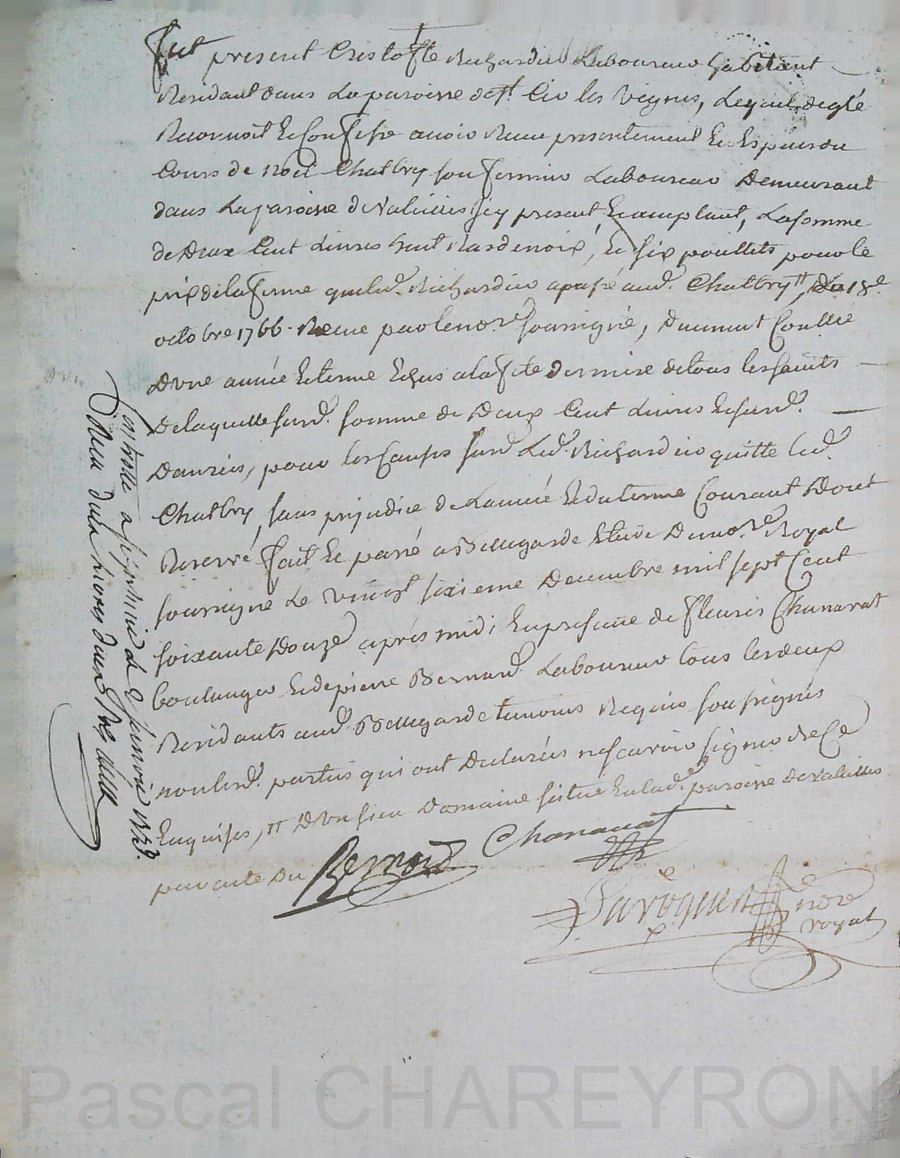 fut present Cristofle Richardier Laboureur habitant
Residant dans La paroisse de st Cir les vignes, Lequel de gré
Reconnoit et Confesse avoir Reçu presentement et
Cours de Noël Chatbry son fermier Laboureur Demeurant
dans La paroisse de Valeilles icy present acceptant, La somme
de Deux Cent Livres huit et six poullets pour le
prix de la ferme que led. Richardier a passé aud. Chatbry tt, Le 18e
octobre 1766. Reçue par le nore soussigné, Durant
D'une année et terme Echus a la fete derniere de tous les saints
De laquelle susd. somme de Deux Cent Livres et susd.
Danrées, pour les Causes susd. Led. Richardier quitte led.
Chatbry, sans prejudice de L'année et du terme Courant Dont
Reservé, fait et passé a Bellegarde Etude Du nore Royal
soussigné Le vingt sixieme Decembre mil sept Cent
soixante Douze après midi, En presence de fleuris Chanavat
boulanger et de pierre Bernard Laboureur tous les deux
Residants aud. Bellegarde temoins Requis soussignés
non led. parties qui ont declarés ne scavoir signer de Ce
Enquises, tt D'un sien Domaine situé En lad. paroisse de Valeilles
par acte Du
Bernard Chanavat
nore
royal
Controllé a le 2 janvier 1773.
Reçu
Pascal CHAREYRON